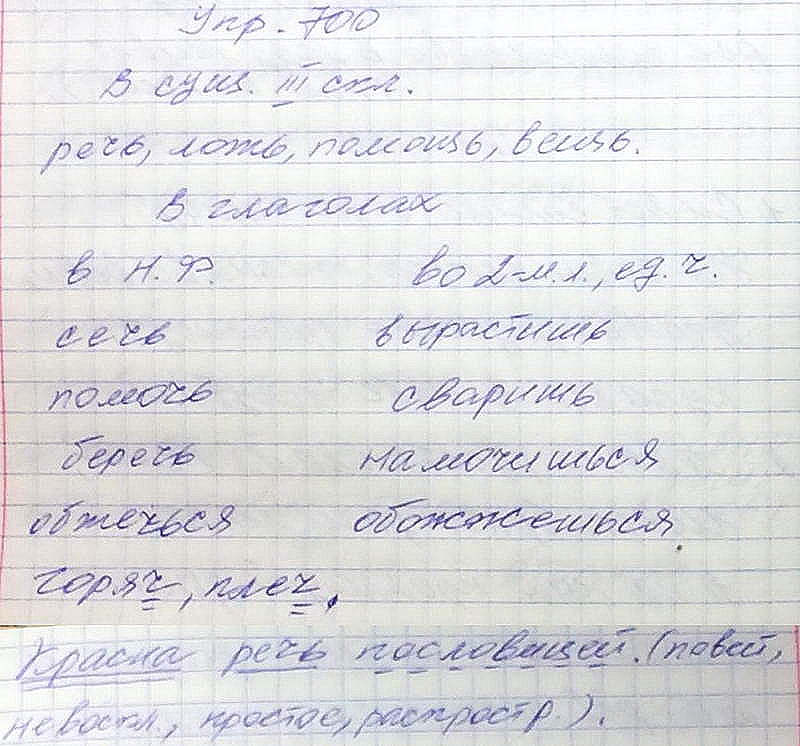 Упр. 700
В сущ. III скл.
речь, ложь, помощь, вещь.
В глаголах
в Н.Ф. во 2-м.л., ед.ч.
сечь вырастишь
помочь сваришь
беречь намочишься
обжечься обожжешься
горяч, плеч.
Красна речь пословицей. (повест,
невоскл., простое, распростр.).